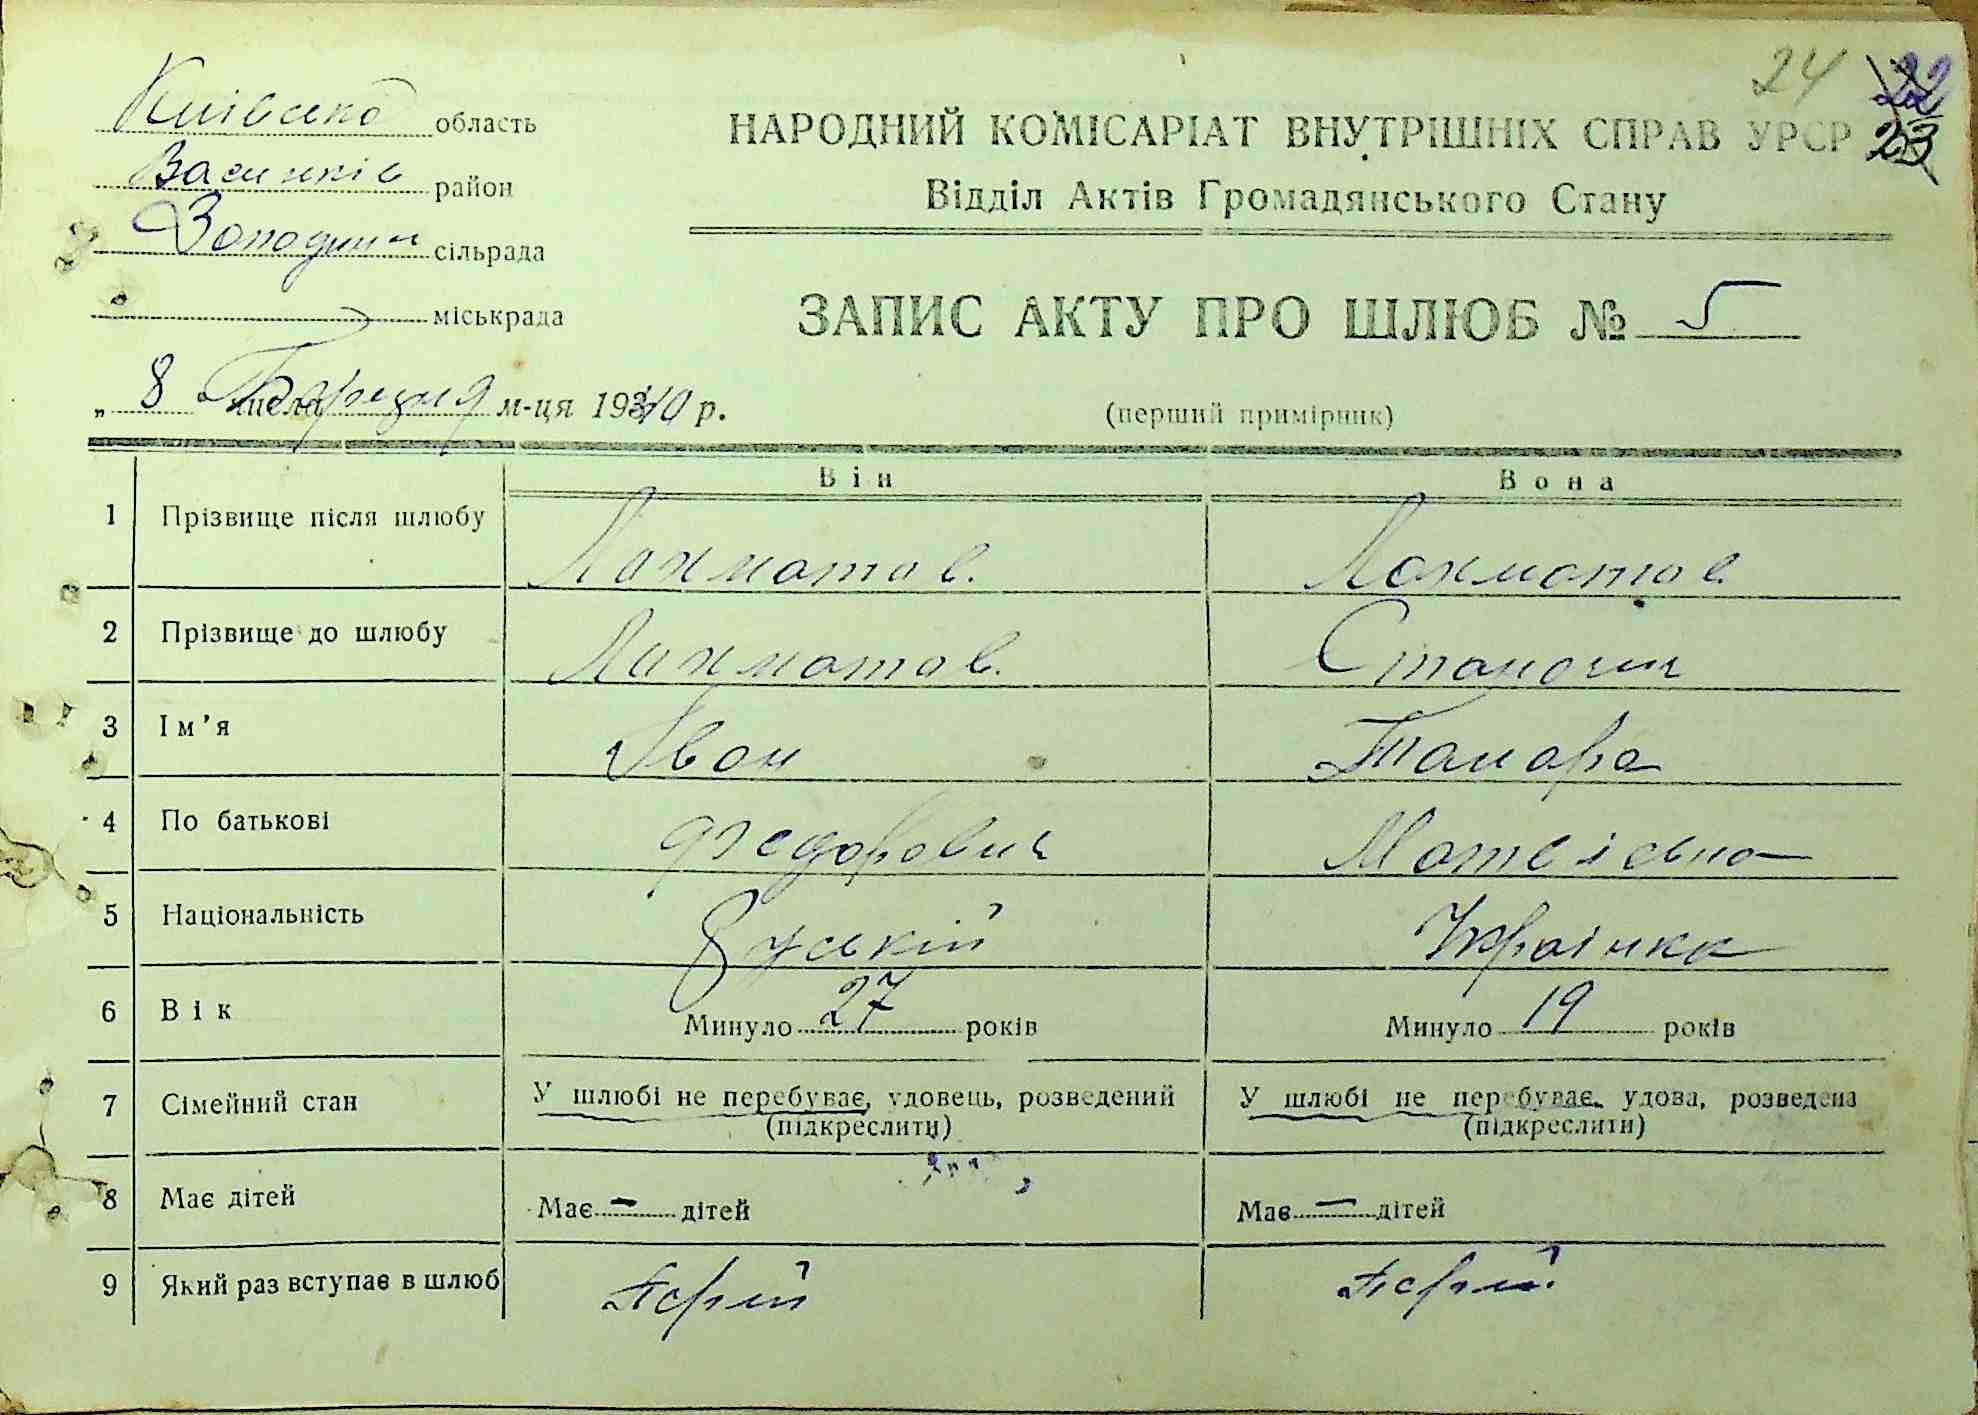 24 22
23
Київська область
Васильків район
сільрада
міськрада
НАРОДНИЙ КОМІСАРІАТ ВНУТРІШНІХ СПРАВ УРСР
Відділ Актів Громадянського Стану
ЗАПИС АКТУ ПРО ШЛЮБ № 5
„ 8 числа м-ця 1940 р.
(перший примірник)
Він Вона
1 Прізвище після шлюбу Лахматов. Лахматов.
2 Прізвище до шлюбу Лахматов.
3 Ім’я Іван Тамара
4 По батькові Федорович Матвіевна
5 Національність Руській Украінка
6 Вік Минуло 27 років Минуло 19 років
7 Сімейний стан У шлюбі не перебуває, удовець, розведений У шлюбі не перебуває, удова, розведена
(підкреслити) (підкреслити)
8 Має дітей Має – дітей Має – дітей
9 Який раз вступає в шлюб